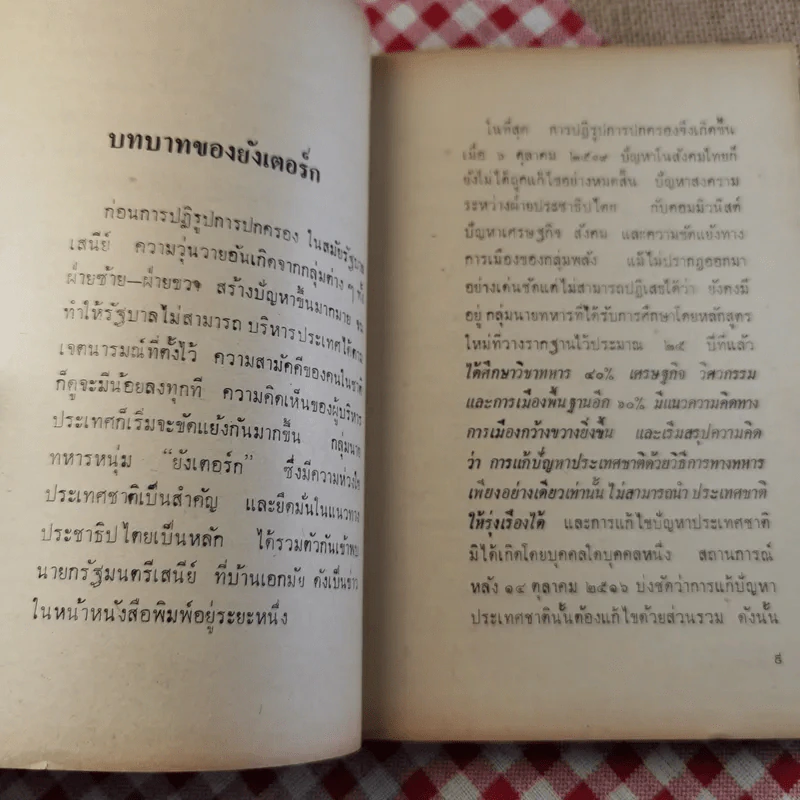 บทบาทของยังเตอร์ก
ก่อนการปฏิรูปการปกครอง ในสมัยรัฐบาล
เสนีย์ ความวุ่นวายอันเกิดจากกลุ่มต่าง ๆ ทั้ง
ฝ่ายซ้าย—ฝ่ายขวา สร้างปัญหาขึ้นมากมาย จน
ทำให้รัฐบาลไม่สามารถ บริหารประเทศได้ตาม
เจตนารมณ์ที่ตั้งไว้ ความสามัคคีของคนในชาติ
ก็ดูจะมีน้อยลงทุกที ความคิดเห็นของผู้บริหาร
ประเทศก็เริ่มจะขัดแย้งกันมากขึ้น กลุ่มนาย
ทหารหนุ่ม “ยังเตอร์ก” ซึ่งมีความห่วงใย
ประเทศชาติเป็นสำคัญ และยึดมั่นในแนวทาง
ประชาธิปไตยเป็นหลัก ได้รวมตัวกันเข้าพบ
นายกรัฐมนตรีเสนีย์ ที่บ้านเอกมัย ดังเป็นข่าว
ในหน้าหนังสือพิมพ์อยู่ระยะหนึ่ง
ในที่สุด การปฏิรูปการปกครองจึงเกิดขึ้น
เมื่อ ๖ ตุลาคม ๒๕๑๙ ปัญหาในสังคมไทยก็
ยังไม่ได้ถูกแก้ไขอย่างหมดสิ้น ปัญหาสงคราม
ระหว่างฝ่ายประชาธิปไตย กับคอมมิวนิสต์
ปัญหาเศรษฐกิจ สังคม และความขัดแย้งทาง
การเมืองของกลุ่มพลัง แม้ไม่ปรากฏออกมา
อย่างเด่นชัดแต่ไม่สามารถปฏิเสธได้ว่า ยังคงมี
อยู่ กลุ่มนายทหารที่ได้รับการศึกษาโดยหลักสูตร
ใหม่ที่วางรากฐานไว้ประมาณ ๒๕ ปีที่แล้ว
ได้ศึกษาวิชาทหาร ๔๐% เศรษฐกิจ วิศวกรรม
และการเมืองพื้นฐานอีก ๖๐% มีแนวความคิดทาง
การเมืองกว้างขวางยิ่งขึ้น และเริ่มสรุปความคิด
ว่า การแก้ปัญหาประเทศชาติด้วยวิธีการทางทหาร
เพียงอย่างเดียวเท่านั้น ไม่สามารถนำ ประเทศชาติ
ให้รุ่งเรืองได้ และการแก้ไขปัญหาประเทศชาติ
มิได้เกิดโดยบุคคลใดบุคคลหนึ่ง สถานการณ์
หลัง ๑๔ ตุลาคม ๒๕๑๖ บ่งชัดว่าการแก้ปัญหา
ประเทศชาตินั้นต้องแก้ไขด้วยส่วนรวม ดังนั้น